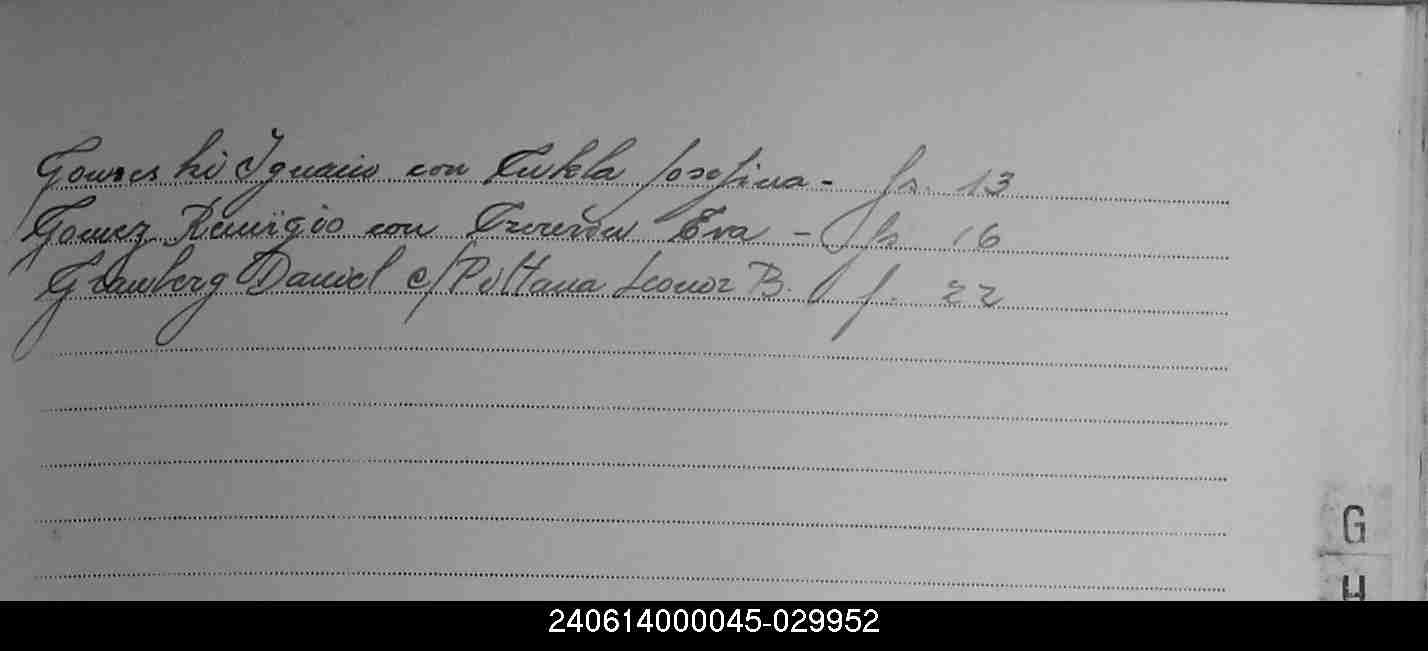 Ignacio con Tukla Josefina - fs. 13
Gomez Remigio con Eva - fs 16
Granberg Daniel c/ Pittana Leonor B. f. 22
G
H
240614000045-029952